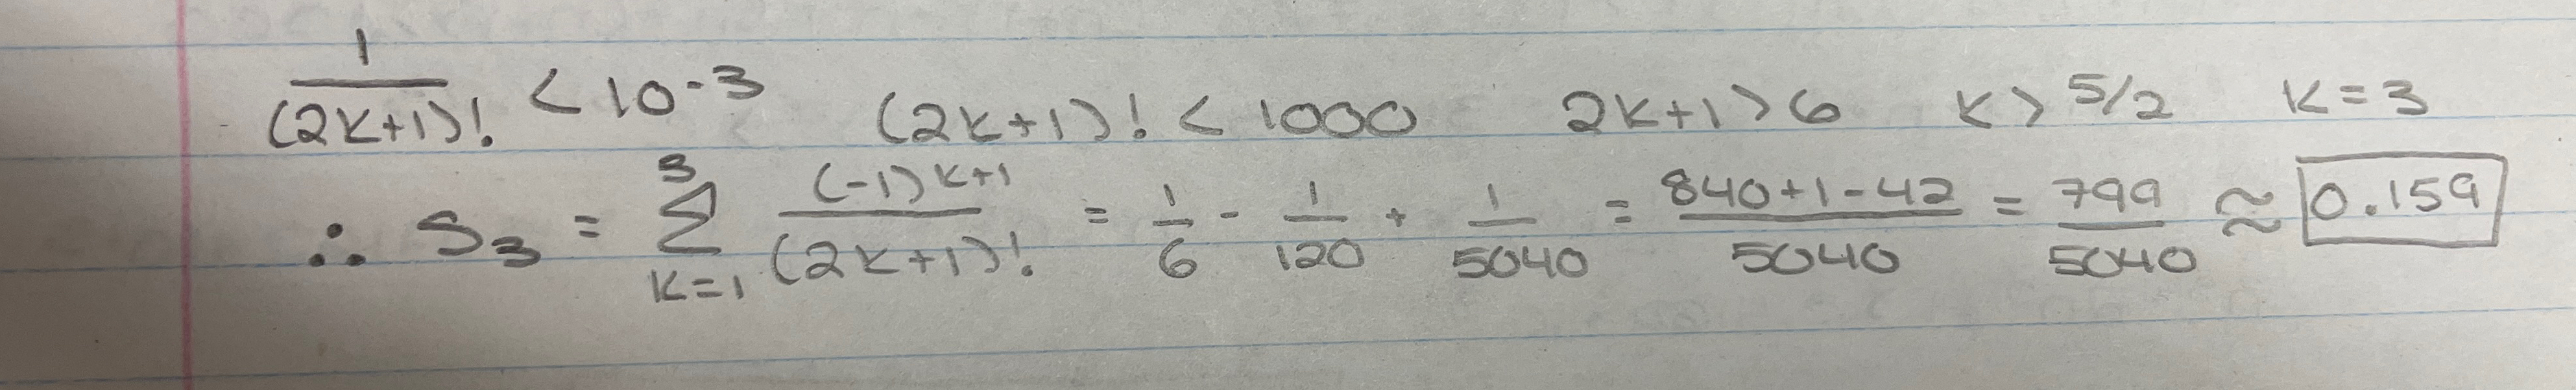 1/(2k+1)! < 10^-3 (2k+1)! < 1000 2k+1 > 6 k > 5/2 k = 3
∴ S₃ = ∑_{k=1}^{3} (-1)^{k+1}/(2k+1)! = 1/6 - 1/120 + 1/5040 = (840+1-42)/5040 = 799/5040 ≈ 0.159